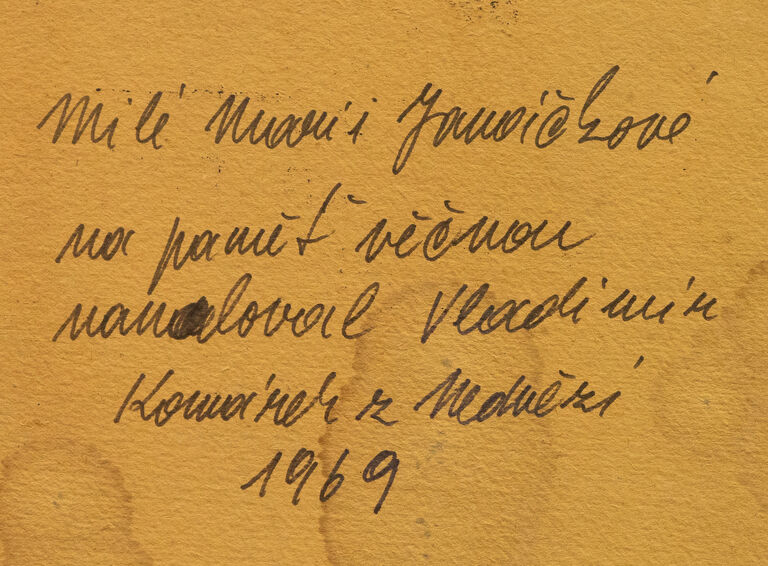 Milé Marii Janoičkové
na paměť věčnou
namaloval Vladimír
Komárek z Medvězí
1969